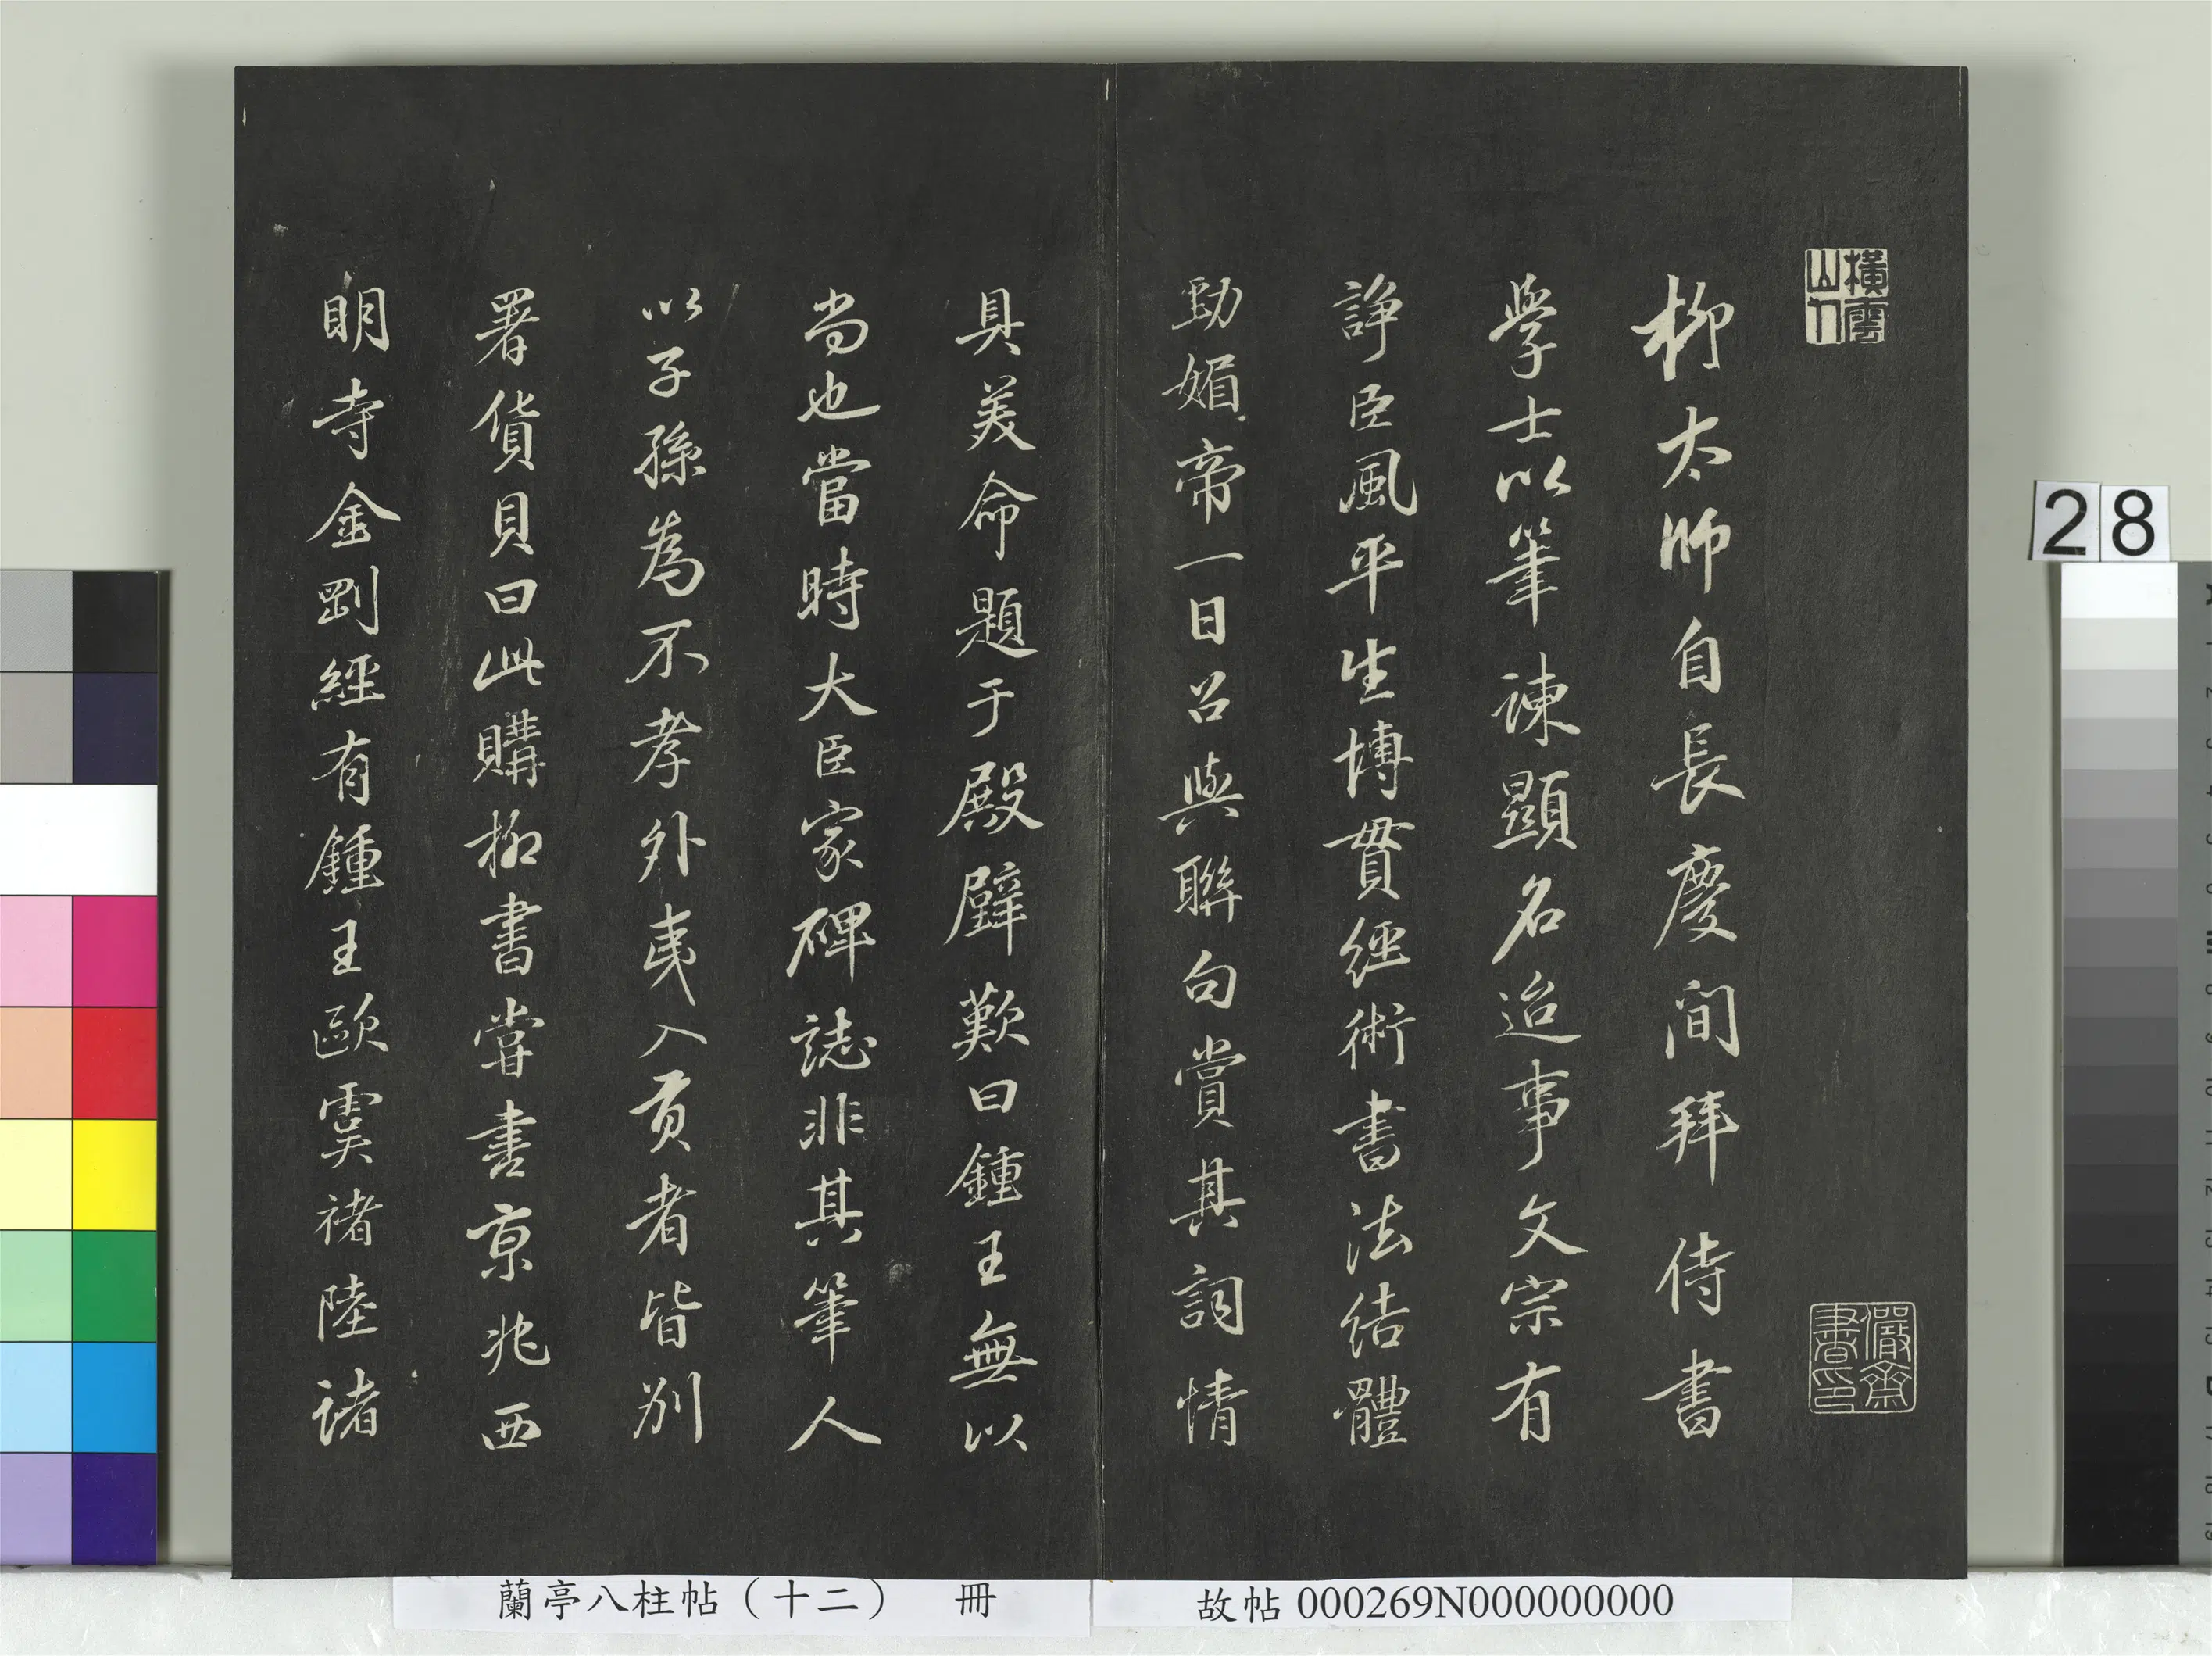 橫雲山人
儼齋書印
柳太師自長慶間拜侍書
學士以筆諫顯名迨事文宗有
諍臣風平生博貫經術書法結體
勁媚帝一日召與聯句賞其詞情
具美命題于殿壁歎曰鍾王無以
尚也當時大臣家碑誌非其筆人
以子孫為不孝外夷入貢者皆別
署貨貝曰此購柳書嘗書京兆西
明寺金剛經有鍾王歐虞褚陸諸
28
蘭亭八柱帖（十二） 冊
故帖 000269N000000000